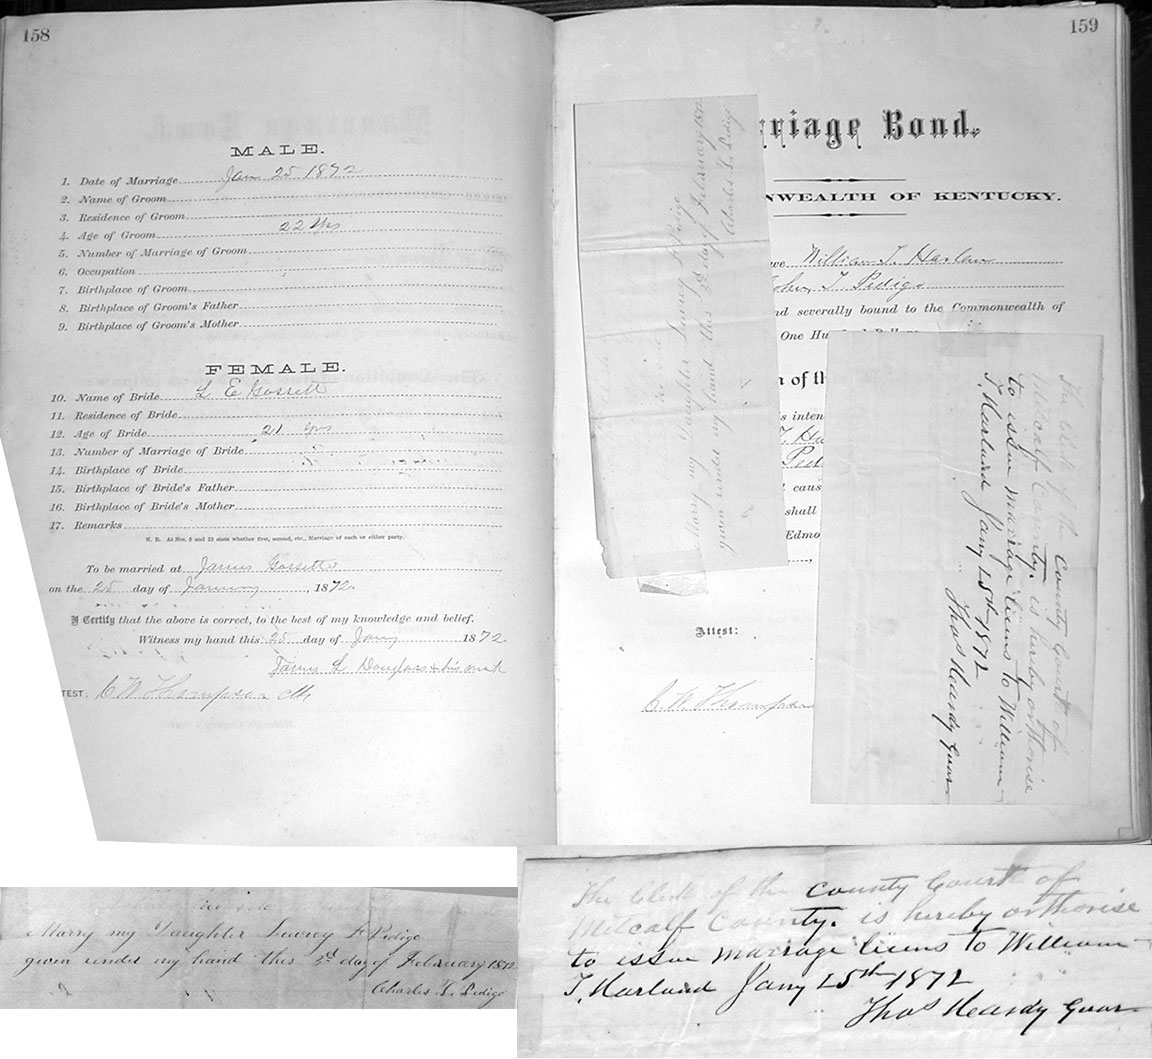 158
MALE.
1. Date of Marriage Jan 25 1872
2. Name of Groom
3. Residence of Groom
4. Age of Groom 22 Yrs
5. Number of Marriage of Groom
6. Occupation
7. Birthplace of Groom
8. Birthplace of Groom's Father
9. Birthplace of Groom's Mother
FEMALE.
10. Name of Bride L E Gossett
11. Residence of Bride
12. Age of Bride 21 yrs
13. Number of Marriage of Bride
14. Birthplace of Bride
15. Birthplace of Bride's Father
16. Birthplace of Bride's Mother
17. Remarks
N. B. At Nos. 5 and 13 state whether first, second, etc., Marriage of each or either party.
To be married at James Gossetts
on the 25 day of January, 1872
I Certify that the above is correct, to the best of my knowledge and belief.
Witness my hand this 25 day of Jany 1872
James L Douglass his mark
TEST: C W Thompson Clk
159
rriage Bond.
NWEALTH OF KENTUCKY.
we William T. Harlow
John T Pedigo
nd severally bound to the Commonwealth of
One Hundred Dollars
n of th
is inten
T. Ha
Ped
t caus
shall
Edmo
Attest:
C. W. Thompson
Marry my Daughter Pedigo
given under my hand this 3rd day of February 1872
Charles L. Pedigo
The Clerk of the County Court of
Metcalf County. is hereby orthorise
to issue marriage licens to William
T. Harland Jany 25th 1872
Thos Heardy Guar
Marry my Daughter Pedigo
given under my hand this 3rd day of February 1872
Charles L. Pedigo
The Clerk of the County Court of
Metcalf County. is hereby orthorise
to issue marriage licens to William
T. Harland Jany 25th 1872
Thos Heardy Guar